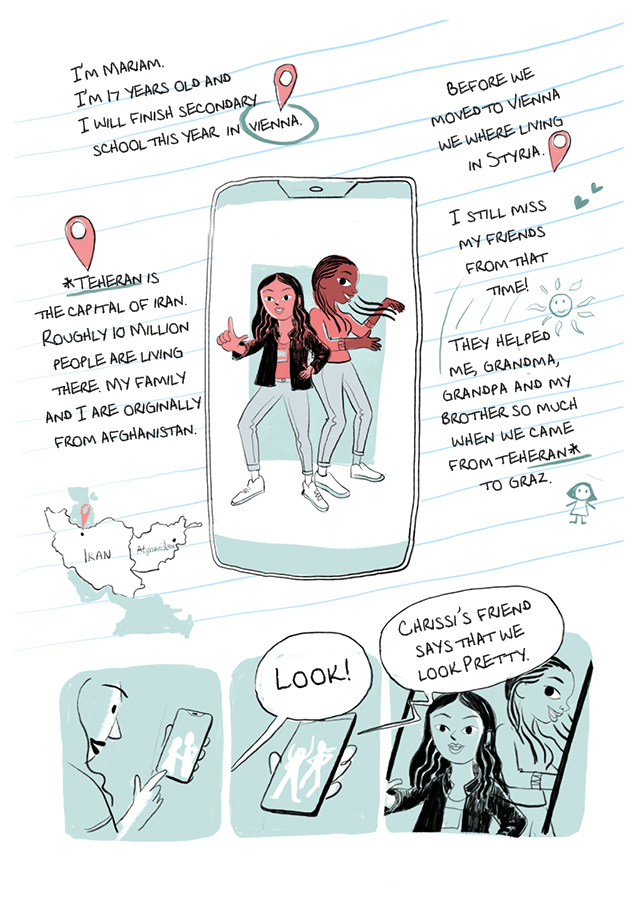 I'M MARIAM.
I'M 17 YEARS OLD AND
I WILL FINISH SECONDARY
SCHOOL THIS YEAR IN VIENNA.
BEFORE WE
MOVED TO VIENNA
WE WHERE LIVING
IN STYRIA.
I STILL MISS
MY FRIENDS
FROM THAT
TIME!
*TEHERAN IS
THE CAPITAL OF IRAN.
ROUGHLY 10 MILLION
PEOPLE ARE LIVING
THERE. MY FAMILY
AND I ARE ORIGINALLY
FROM AFGHANISTAN.
THEY HELPED
ME, GRANDMA,
GRANDPA AND MY
BROTHER SO MUCH
WHEN WE CAME
FROM TEHERAN*
TO GRAZ.
IRAN
Afghanistan
LOOK!
CHRISSI'S FRIEND
SAYS THAT WE
LOOK PRETTY.